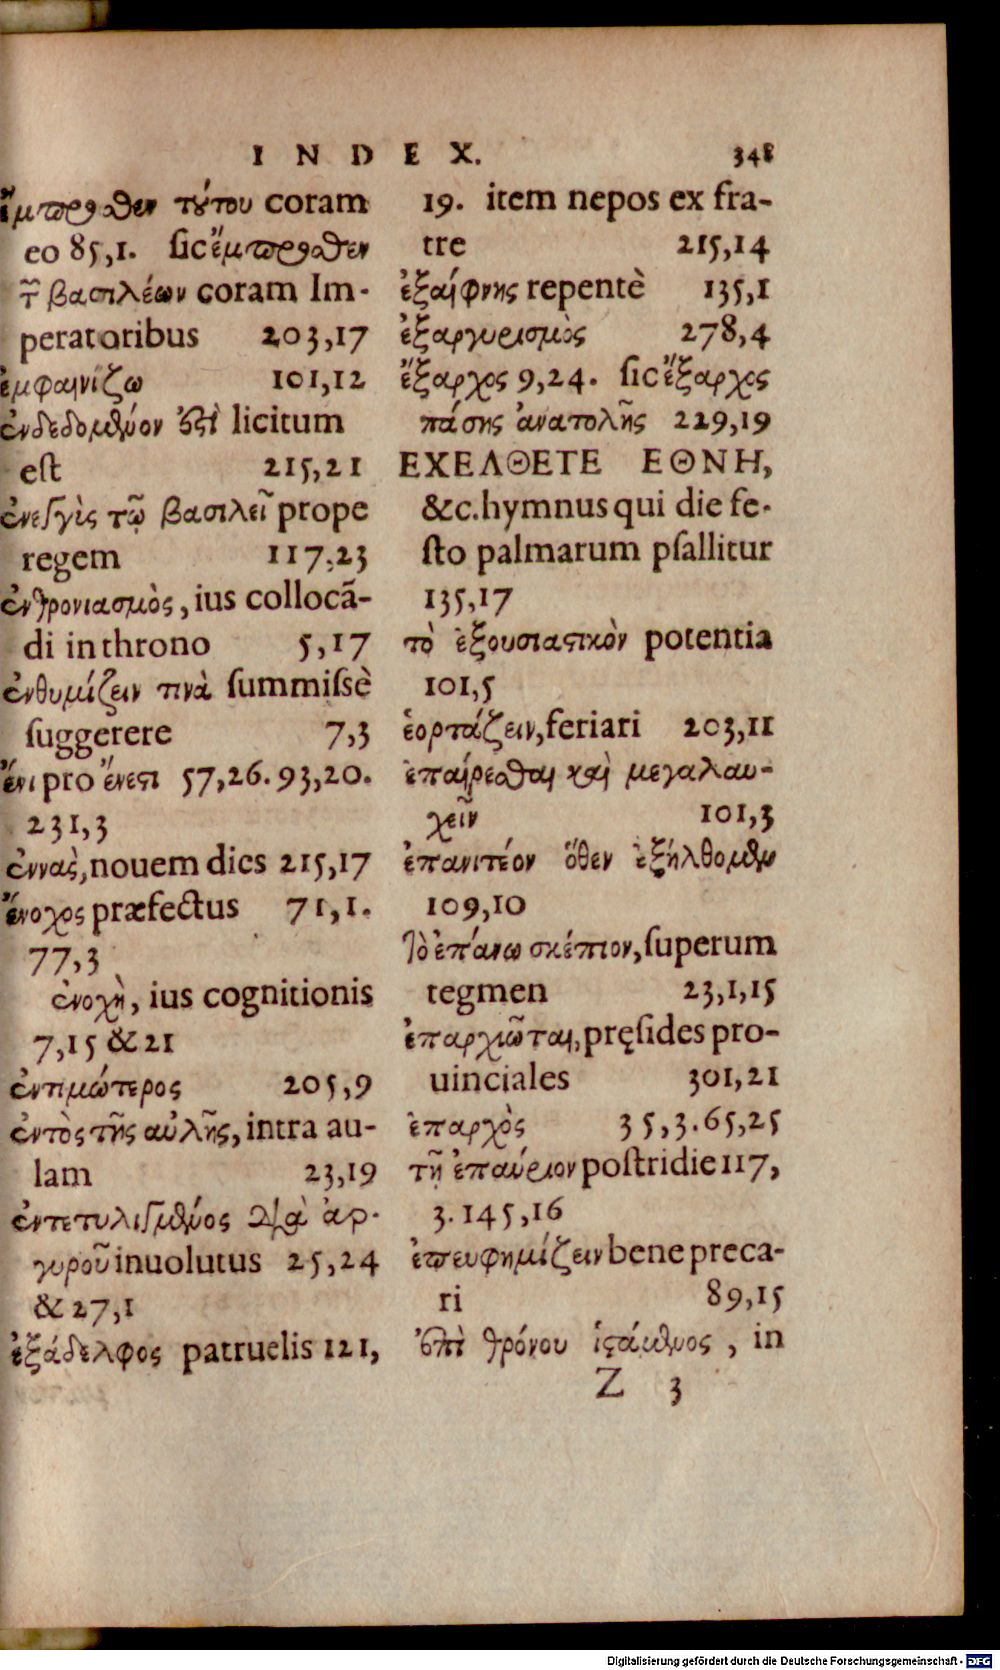 INDEX. 348
ἔμπροσθεν τούτου coram
eo 85,1. ſic ἔμπροσθεν
τῶν βασιλέων coram Im-
peratoribus 203,17
ἐμφαινίζω 101,12
ἐνδεδομένον ἐστὶ licitum
eſt 215,21
ἐνεγγὺς τῷ βασιλεῖ prope
regem 117,23
ἐνθρονιασμὸς, ius collocã-
di in throno 5,17
ἐνθυμίζειν τινὰ ſummiſsè
ſuggerere 7,3
ἔνι pro ἔνεστι 57,26. 93,20.
231,3
ἐνναὲς, nouem dies 215,17
ἔνοχος præfectus 71,1.
77,3
ἐνοχὴ, ius cognitionis
7,15 & 21
ἐντιμώτερος 205,9
ἐντὸς τῆς αὐλῆς, intra au-
lam 23,19
ἐντετυλιγμένος διὰ ἀρ-
γυροῦ inuolutus 25,24
& 27,1
ἐξάδελφος patruelis 121,
19. item nepos ex fra-
tre 215,14
ἐξαίφνης repentè 135,1
ἐξαργυρισμὸς 278,4
ἔξαρχος 9,24. ſic ἔξαρχος
πάσης ἀνατολῆς 229,19
ΕΧΕΛΘΕΤΕ ΕΘΝΗ,
&c. hymnus qui die fe-
ſto palmarum pſallitur
135,17
τὸ ἐξουσιαστικὸν potentia
101,5
ἑορτάζειν, feriari 203,11
ἐπαίρεσθαι καὶ μεγαλαυ-
χεῖν 101,3
ἐπανιτέον ὅθεν ἐξήλθομεν
109,10
τὸ ἐπάνω σκέπιον, ſuperum
tegmen 23,1,15
ἐπαρχιῶται, pręſides pro-
uinciales 301,21
ἐπαρχὸς 35,3. 65,25
τῇ ἐπαύριον poſtridie 117,
3. 145,16
ἐπευφημίζειν bene preca-
ri 89,15
ἐπὶ θρόνου ἱστάμενος, in
Z 3
Digitalisierung gefördert durch die Deutsche Forschungsgemeinschaft - DFG